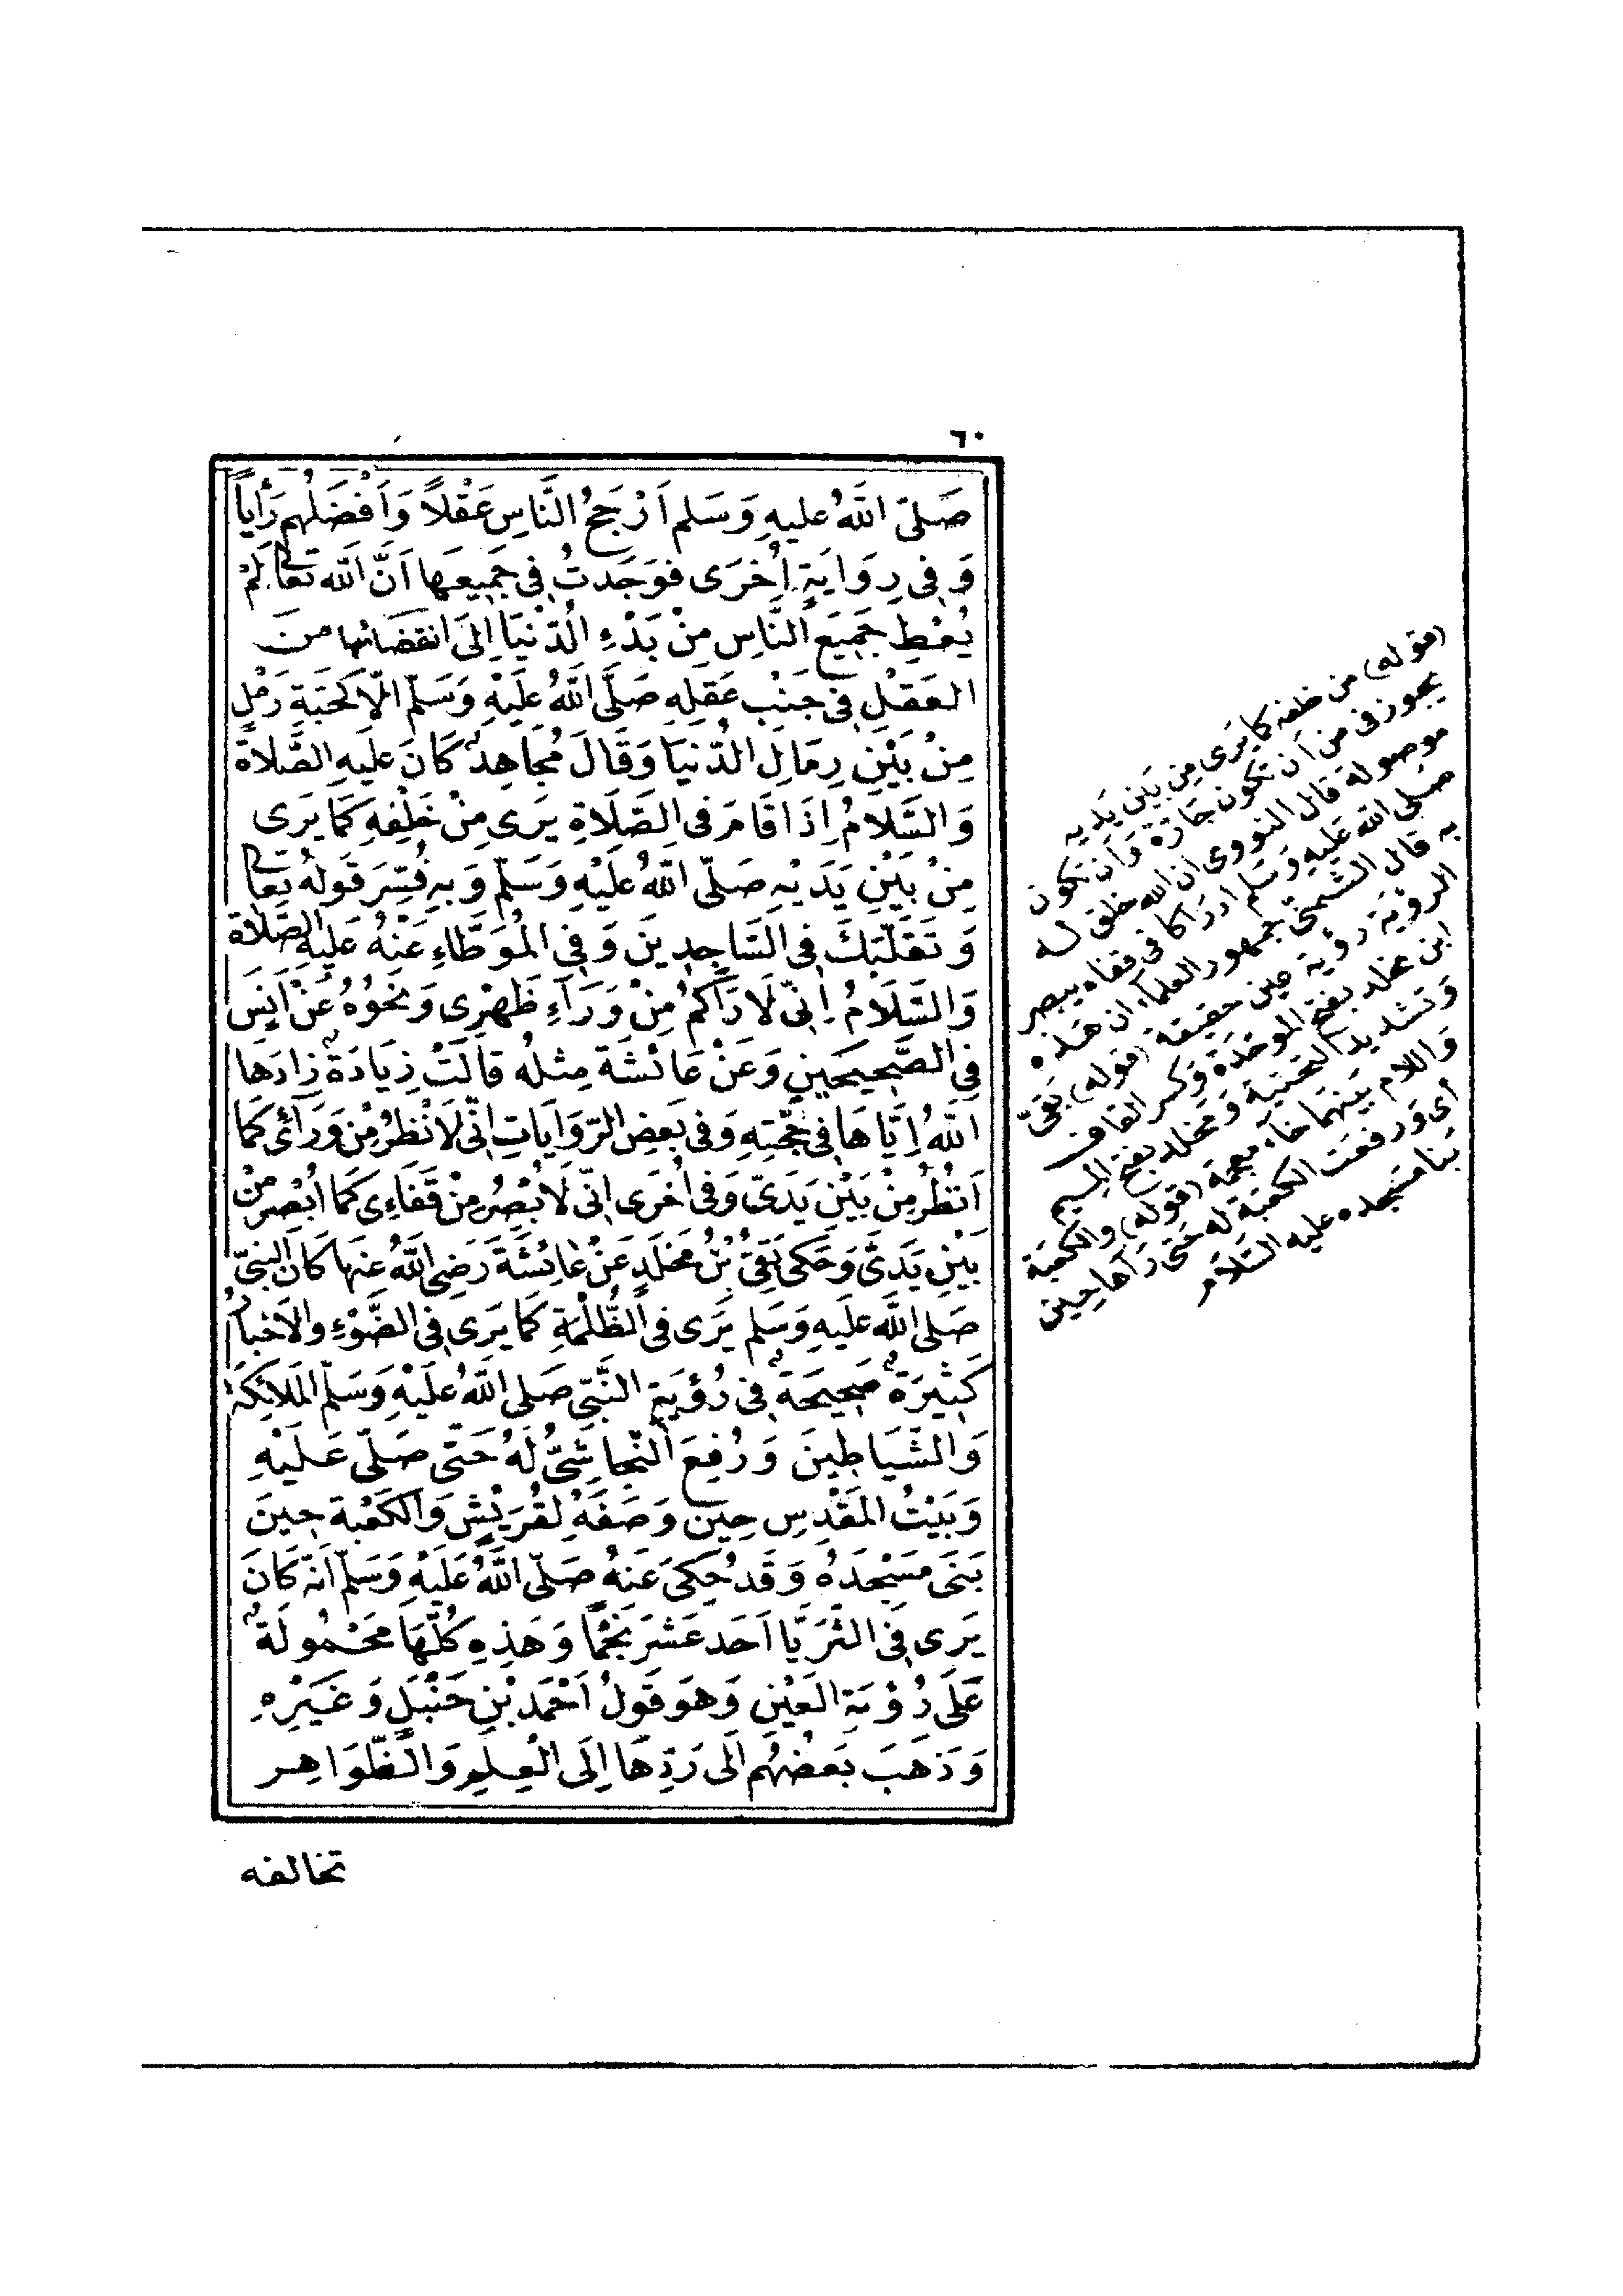 ٦٠
صَلّى اللهُ عليهِ وَسَلم اَرْجَحُ النَّاسِ عَقْلاً وَاَفْضَلُهم رَأياً
وَفِى رِوَايَةٍ اُخرَى فوَجَدتُ فِى جَمِيعِهَا اَنَّ اللهَ تعَالَى لَمْ
يُعْطِ جَمِيَع النَّاسِ مِنْ بَدْءِ الدُّنْيَا اِلَى انقضَائها منَ
العَقْلِ فِى جَنْبِ عَقلِهِ صَلَّى اللهُ عَلَيْهِ وَسَلّم الّا كَحَبَةِ رَمْلٍ
مِنْ بَيْنِ رِمَالِ الدُّنيَا وَقَالَ مُجَاهِدٌ كَانَ عليَهِ الصَّلاةُ
وَالسَّلامُ اِذَا قَامَ فى الصَّلَاةِ يَرى مِنْ خَلْفِهِ كَمَا يَرَى
مِنْ بَيْنِ يَدَيْهِ صَلّى اللهُ عَلَيْهِ وَسَلّم وَبِهِ فُسِّرَ قَولهُ تَعَالَى
وَتَقَلّبَكَ فِى السَّاجِدِينَ وَفِى المُوَطَّاءِ عَنْهُ عَلَيهِ الصَّلاةُ
وَالسَّلَامُ اِنِّى لَارَاَكُمْ مِنْ وَرَآءِ ظَهْرِى وَنَحْوُهُ عَنْ اَنَسٍ
فِى الصَّحِيحَينِ وَعَنْ عَائشَةَ مِثلُهُ قالَتْ زِيَادَةٌ زَادَها
اللهُ اِيَّاهَا فِى حُجَّتِهِ وَفى بَعضِ الرّوَايَاتِ اِنِّى لَانْظُرُ مِنْ وَرَائى كَمَا
اَنظُرُ مِنْ بَيْنِ يَدَىَّ وَفى اُخرَى اِنّى لَابْصِرُ مِنْ قَفَاءِى كَمَا اُبْصِرُ مِنْ
بَيْنِ يَدَىَّ وَحَكى بَقِىُّ بْنُ مَخلَدٍ عَنْ عَائِشَةَ رَضِىَ اللهُ عَنهَا كَانَ النبِىّ
صَلى اللهُ عَليَهِ وَسَلم يَرَى فى الظُّلْمَةِ كَمَا يَرَى فِى الضَّوْءِ والاَخبارُ
كَثِيرَةٌ صَحِيحَةٌ فِى رُؤيَةِ النَّبّىِ صَلى اللهُ عَلَيْهِ وَسَلّم المَلَائِكَةَ
وَالشّيَاطِينَ وَرُفِعَ النّجَاشِىُّ لَهُ حَتّى صَلّى عَلَيْهِ
وَبَيْتُ المَقْدِسِ حِينَ وَصَفَهُ لقُرَيْشٍ وَالكَعْبَة حِينَ
بَنَى مَسْجِدَهُ وَقَد حُكِىَ عَنهُ صَلّى اللهُ عَلَيْهِ وَسَلّم اَنهُ كَانَ
يَرى فِى الثّرَيَّا اَحَد عَشَرَ نَجْمًا وَهَذِهِ كُلّهَا مَحْمُولَةٌ
عَلَى رُؤْيَةِ العَيْنِ وَهوَ قَولُ اَحْمَد بْنِ حَنْبَلٍ وَغَيْرِهِ
وَذهَبَ بَعضُهُم اَلى رَدِّهَا اِلَى الْعِلمِ وَالظّوَاهِر
تخالفه
(قوله) من خلفه كما يَرى مِن بَيْنِ يَديه
يجوز فى من أن تكون جارّة وَأن تكون
موصولة قال النووى ان الله خلق له
صَلى الله عَليه وَسَلم ادرَاكا فى قفاه يبصر
به قال الشمنى جمهور العلماء ان هَذه
الرؤيَة رؤية عين حقيقة (قوله) بَقىّ
ابن مخلد بفتح الموَحّدَة وَكسر القاف
وَتشديد التحتية وَمخلد بفتح الميم
وَاللام بَينهما خاء معجمة (قوله) وَالكعبَة
أى وَرفعت الكعبَة له حتى رَآها حِين
بنا مَسجده عليه السّلام